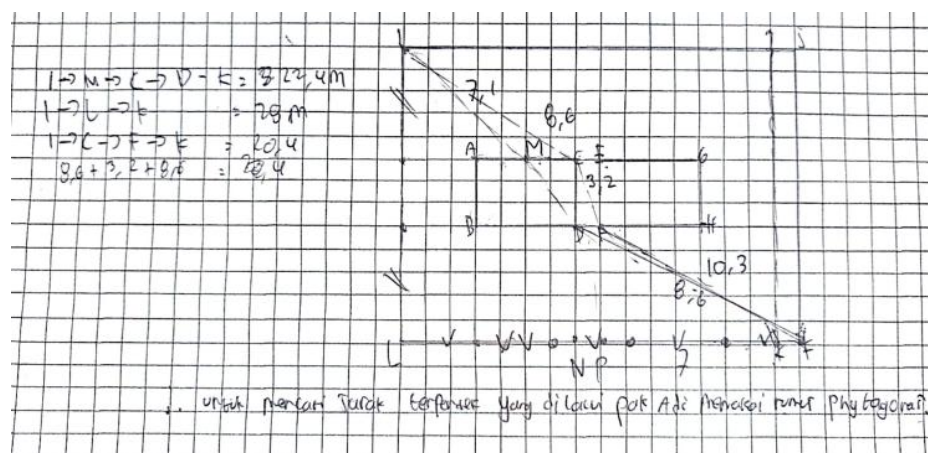 I → M → C → D - K = 22,4 M
I → L → K = 28 M
I → C → F → K = 20,4
8,6 + 3,2 + 8,6 = 20,4
I
J
7,1
8,6
A M C E G
3,2
B D F H
10,3
8,6
L N P 7 K
untuk mencari Jarak terpendek yang dilalui pak Adi memakai rumus phytogoras.